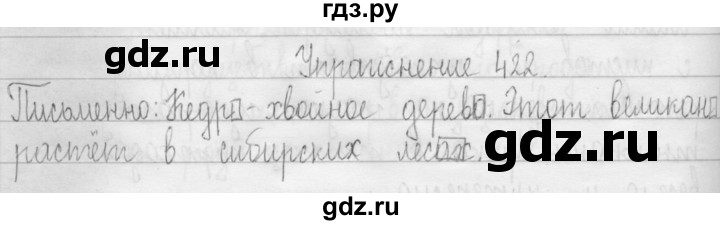 гдз.ру
Упражнение 422.
Письменно: Кедр - хвойное дерево. Этот великан
растёт в сибирских лесах.
gdz.ru
gdz.ru
gdz.ru